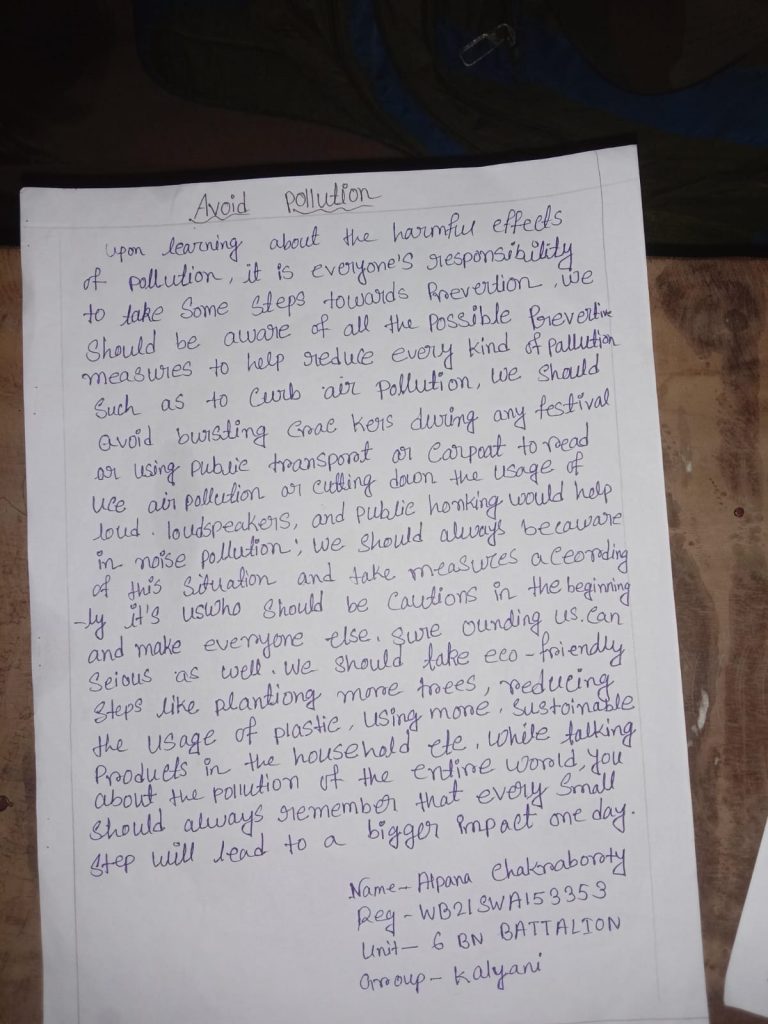 Avoid Pollution
upon learning about the harmful effects
of pollution, it is everyone's responsibility
to take Some Steps towards Prevention, we
Should be aware of all the Possible Preventive
measures to help reduce every kind of pallution
Such as to Curb air pollution, we should
avoid bursting Crac kers during any festival
or using public transport or Carpoat to read
uce air pollution or cutting down the usage of
loud. loudspeakers, and public honking would help
in noise pollution; we should always becaware
of this Situation and take measures according
-ly it's uswho should be Cautions in the beginning
and make everyone else. Sure ounding us. Can
Seious as well. We should take eco-friendly
Steps like plantiong more trees, reducing
the usage of plastic, using more. Sustainable
Products in the household etc. While talking
about the pollution of the entire world, you
Should always remember that every Small
Step will lead to a bigger impact one day.
Name- Alpana Chakraborty
Reg - WB21SWA153353
Unit- 6 BN BATTALION
Group- Kalyani